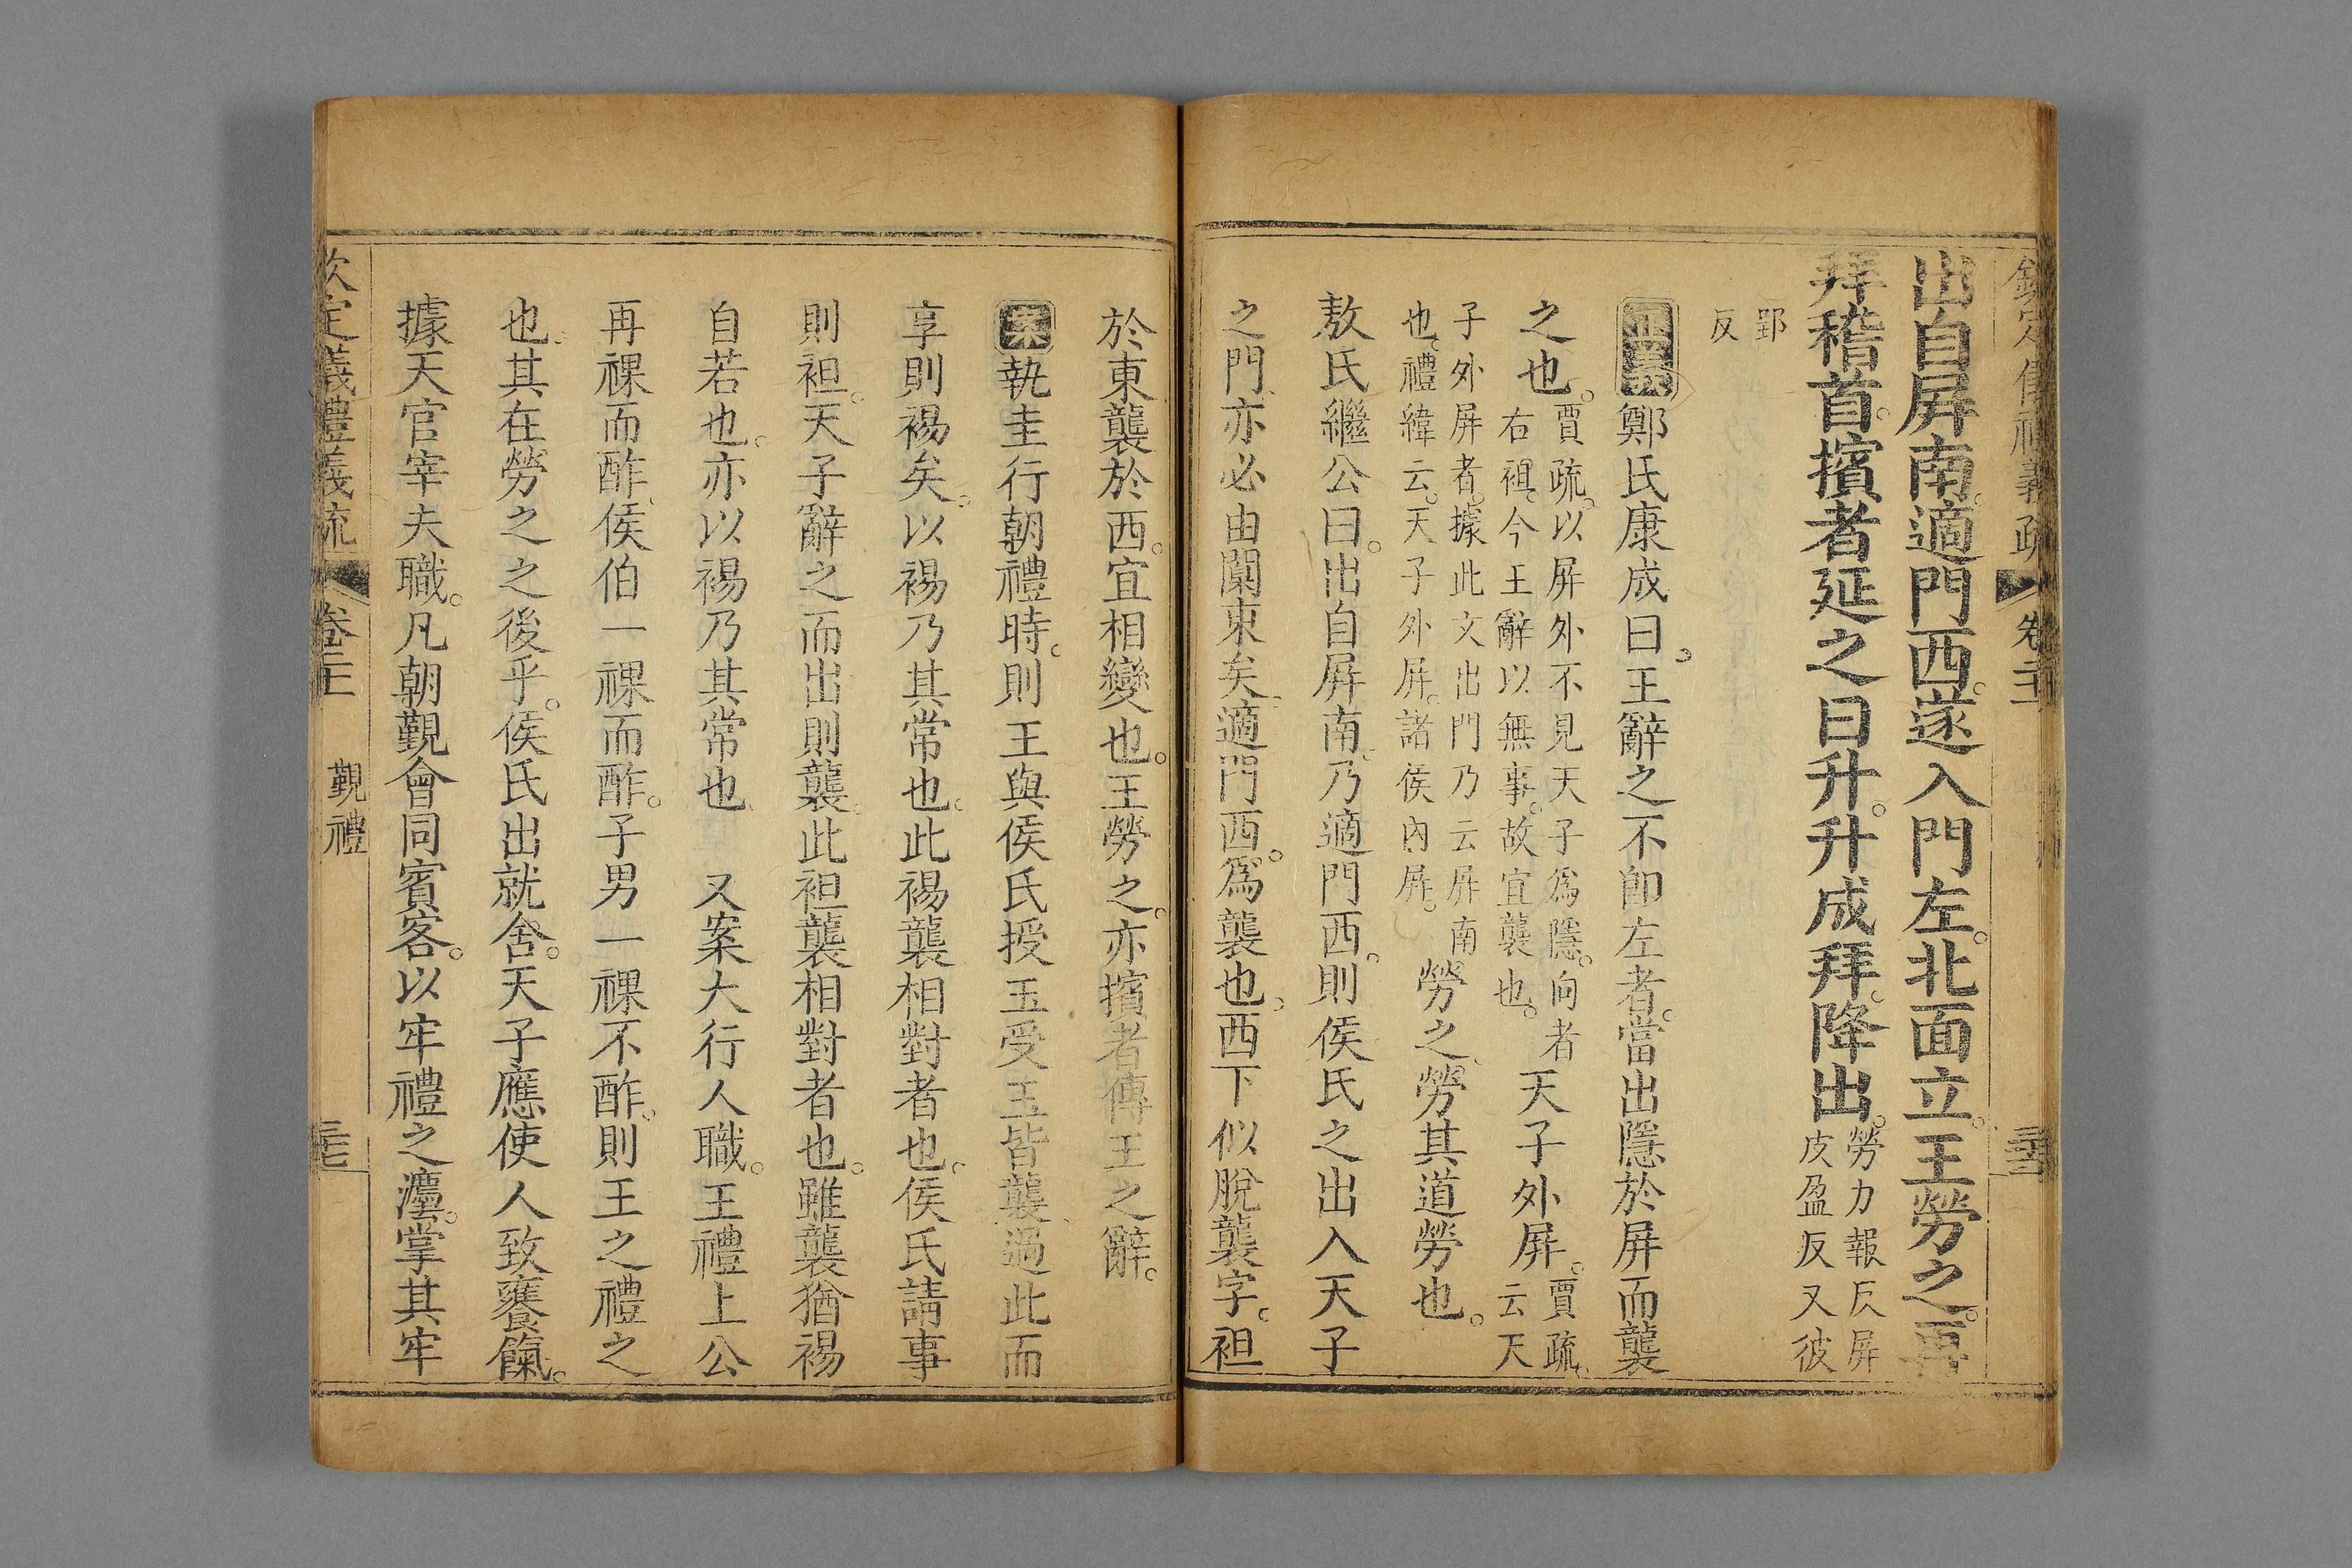 欽定儀禮義疏 卷二十 
出自屏南。適門西。遂入門左。北面立。王勞之。再
拜稽首。擯者延之曰升。升成拜。降出。
勞力報反屏
皮盈反又彼
郢
反
正義鄭氏康成曰。王辭之不卽左者。當出隱於屏而襲
之也。
賈疏。以屏外不見天子爲隱。向者
右袒。今王辭以無事。故宜襲也。
天子外屏。
賈疏。
云天
子外屏者。據此文出門乃云屏南
也。禮緯云。天子外屏。諸侯內屏。
勞之、勞其道勞也。
敖氏繼公曰。出自屏南、乃適門西。則侯氏之出入天子
之門、亦必由闑東矣。適門西。爲襲也。西下似脫襲字。袒
於東襲於西。宜相變也。王勞之。亦擯者傳王之辭。
案執圭行朝禮時。則王與侯氏授玉受玉皆襲、過此而
享則裼矣。以裼乃其常也。此裼襲相對者也。侯氏請事
則袒。天子辭之而出則襲。此袒襲相對者也。雖襲猶裼
自若也。亦以裼乃其常也、 又案大行人職。王禮上公
再祼而酢、侯伯一祼而酢。子男一祼不酢。則王之禮之
也。其在勞之之後乎。侯氏出就舍。天子應使人致饔餼。
據天官宰夫職。凡朝覲會同賓客。以牢禮之灋。掌其牢
欽定儀禮義疏 卷二十 覲禮